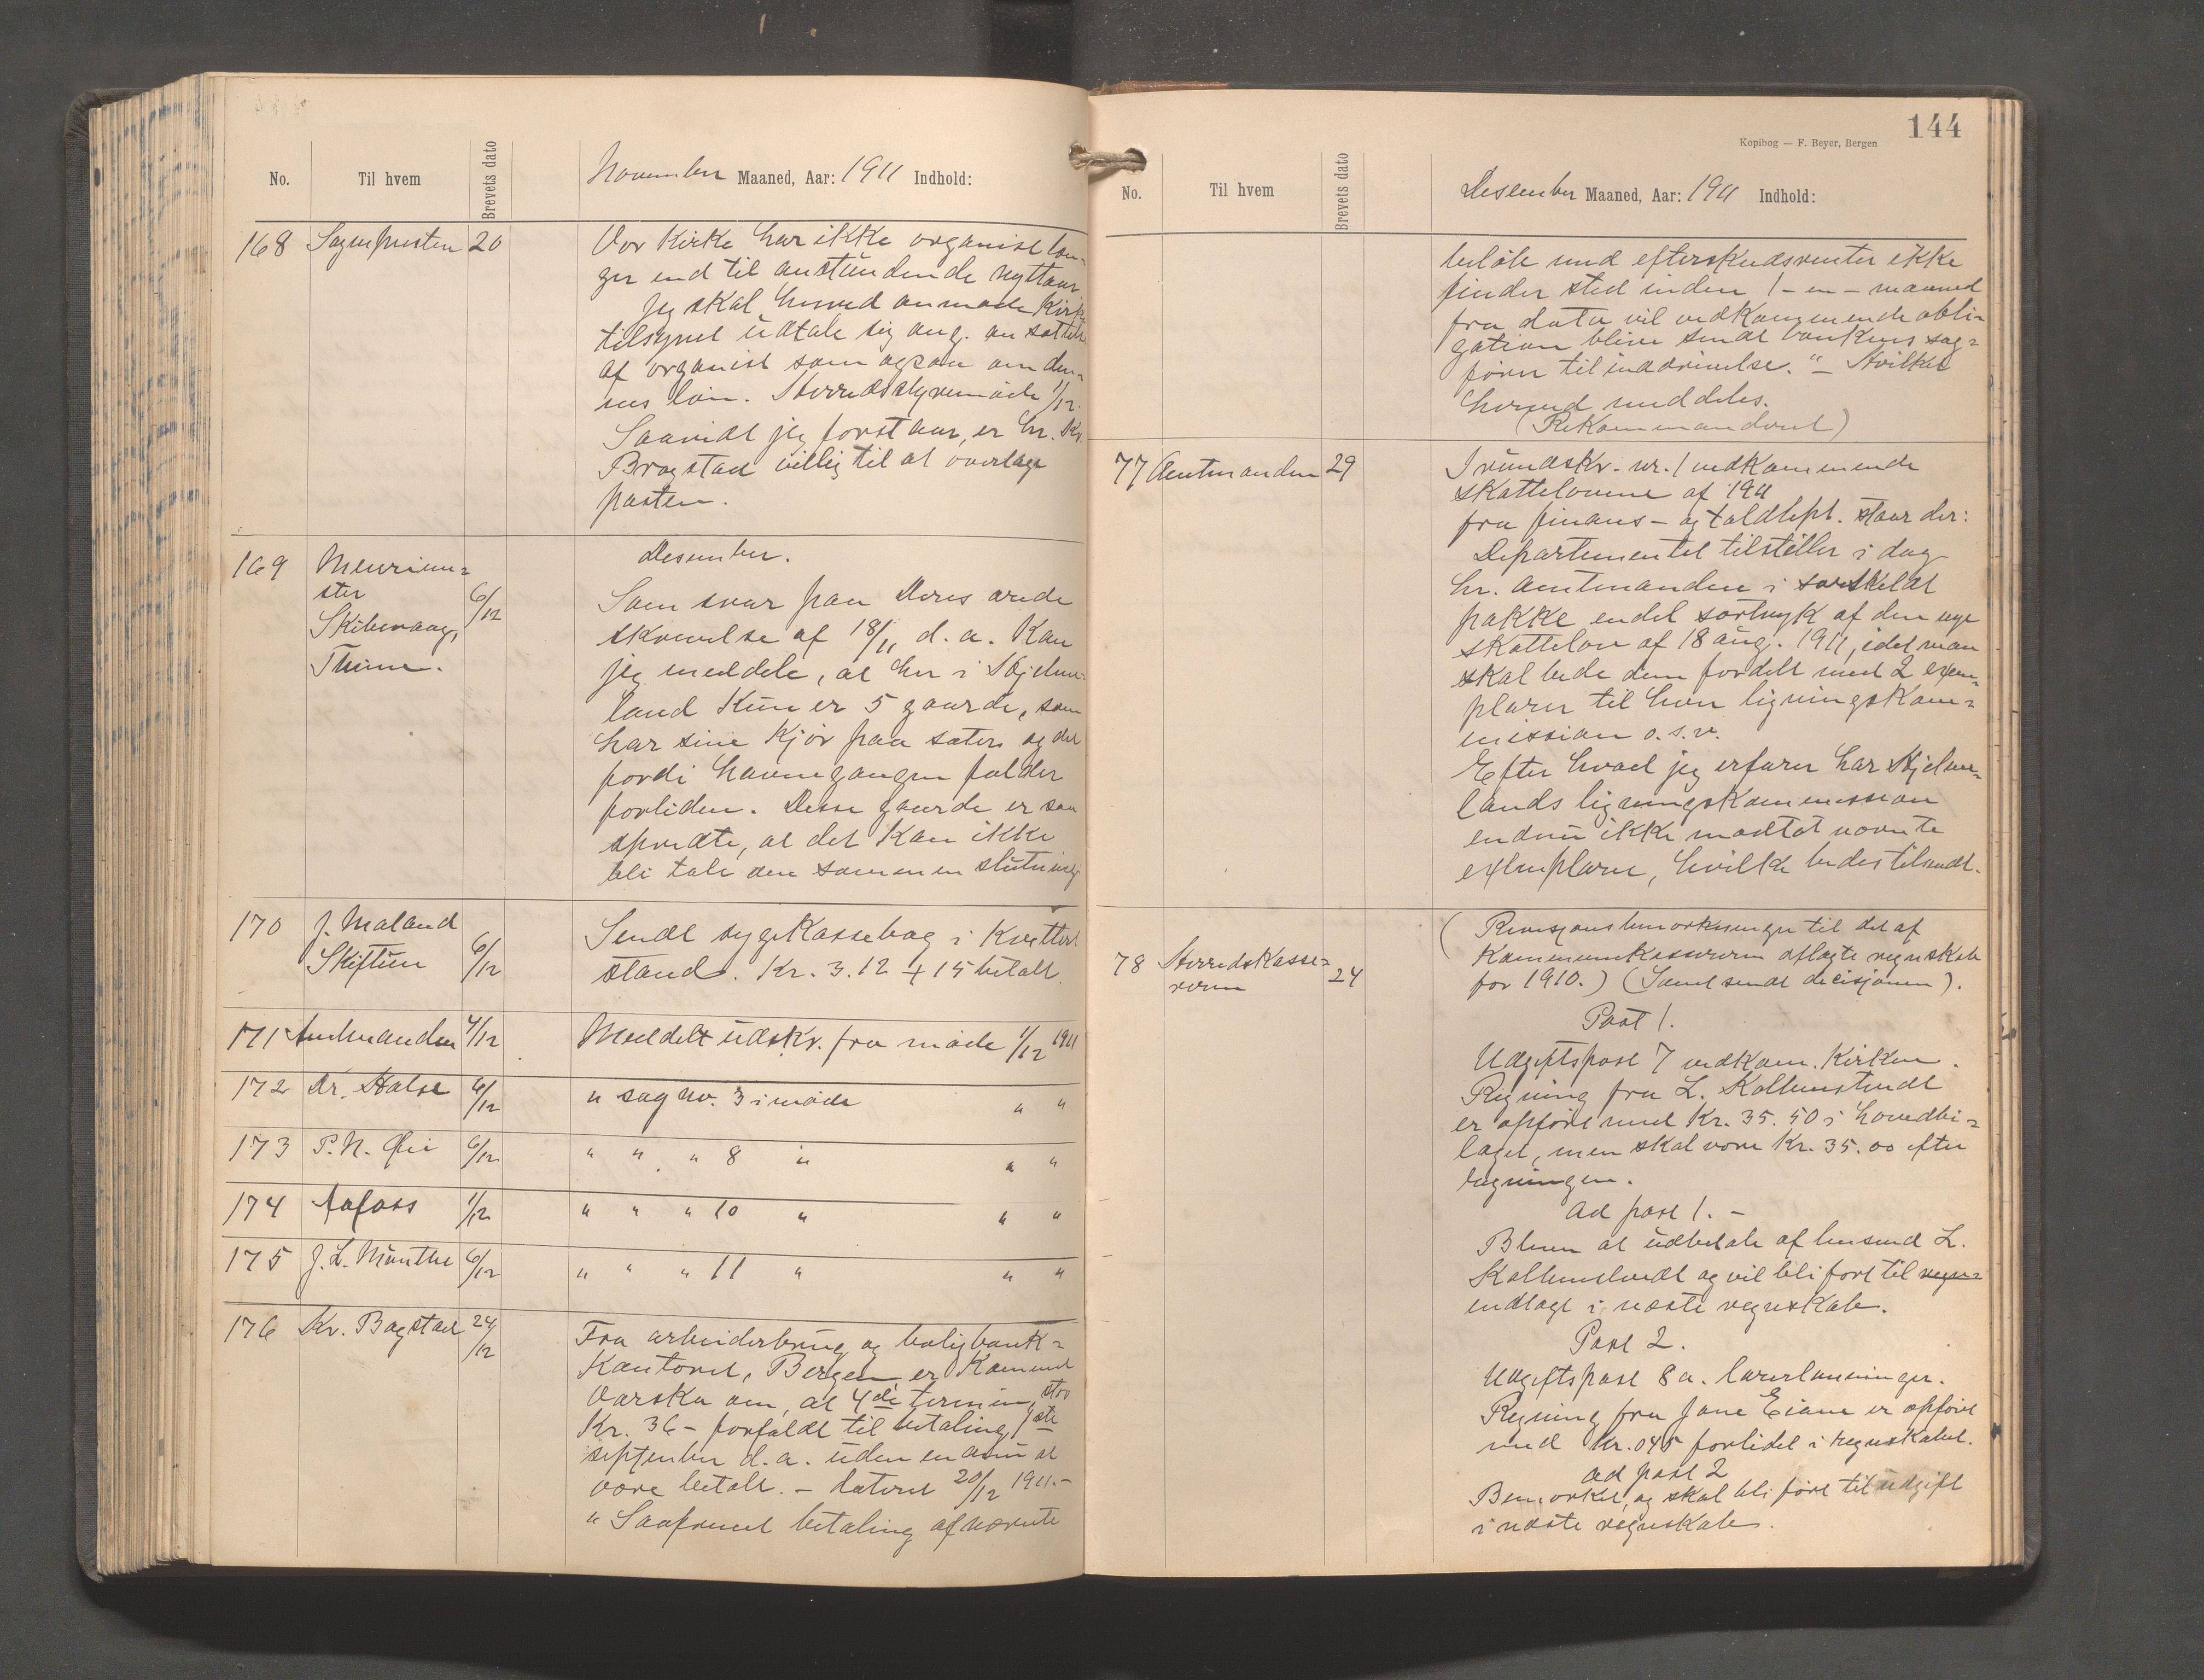 No.
Til hvem
Brevets dato
November Maaned, Aar: 1911 Indhold:
168 Sognepresten 20
Vor kirke har ikke organist læn-
ger end til anstundende nyttaar
Jeg skal herved anmode kirke
tilsynet udtale sig ang. ansættelse
af organist som ogsaa om den-
nes løn. Herredsstyremøde 1/12.
Saavidt jeg forstaar, er hr. Kr.
Bragstad villig til at overtage
posten.
169 Meierime=
ster
Skibevaag,
Thime.
6/12
Desember.
Som svar paa Deres ærede
skrivelse af 18/11 d. a. kan
jeg meddele, at her i Hjelme-
land kun er 5 gaarde, som
har sine kjør paa sæter og det
fordi havnegangen falder
forliden. Disse gaarde er saa
spredte, at det kan ikke
bli tale om sammenslutning
170 J. Maland
Skiftun
6/12
Sendt sygekassebog i kvittert
stand. Kr. 3.12 + 15 betalt.
171 Amtmanden 4/12
Meddelt udskr. fra møde 1/12 1911
172 Dr. Halse 6/12
" sag nr. 3 i møde " "
173 P. N. Øie 6/12
" " " 8 " " "
174 Aafoss 1/12
" " " 10 " " "
175 J. L. Munthe 6/12
" " " 11 " " "
176 Kr. Bagstad 24/12
Fra arbeiderbrug og boligbank=
kontoret, Bergen er kommet
varsku om, at 4de termin, stor
Kr. 36 - forfaldt til betaling 1ste
september d. a. uden endnu at
være betalt. - dateret 20/12 1911.-
" Saafremt betaling af nævnte
144
Kopibog — F. Beyer, Bergen
No.
Til hvem
Brevets dato
Desember Maaned, Aar: 1911 Indhold:
beløb med efterskudsrenter ikke
finder sted inden 1 - en - maaned
fra dato vil vedkommende obli=
gation bliver sendt bankens sag=
fører til inddrivelse." - Hvilket
herved meddeles.
(Rekommanderet)
77 Amtmanden 29
I rundskr. nr. 1 vedkommende
skattelovene af 1911
fra finans- og tolddept. staar der:
Departementet tilstiller i dag
hr. amtmanden i særskildt
pakke endel særtryk af den nye
skattelov af 18 aug. 1911, idet man
skal bede dem fordelt med 2 exem=
plarer til hver ligningskom=
mission o.s.v.
Efter hvad jeg erfarer har Hjelme=
lands ligningskommission
endnu ikke modtat nævnte
exemplarer, hvilke bedes tilsendt.
78 Herredskasse=
reren
24
(Revisjonsbemerkninger til det af
kommunekassereren aflagte regnskab
for 1910.) (Samt sendt decisjonen).
Post 1.
Udgiftspost 7 vedkom. kirken.
Regning fra L. Kolbenstvedt
er opført med Kr. 35.50 i hovedbi=
laget, men skal være Kr. 35.00 efter
regningen.
Ad post 1. -
Bleven at udbetale af lensmd L.
Kolbenstvedt og vil bli ført til regn=
indtægt i næste regnskab.
Post 2.
Udgiftspost 8a. lærerlønninger.
Regning fra Jone Eiane er opført
med Kr. 045 forlidet i regnskabet.
ad post 2
Bemærket, og skal bli ført til udgift
i næste regnskab.